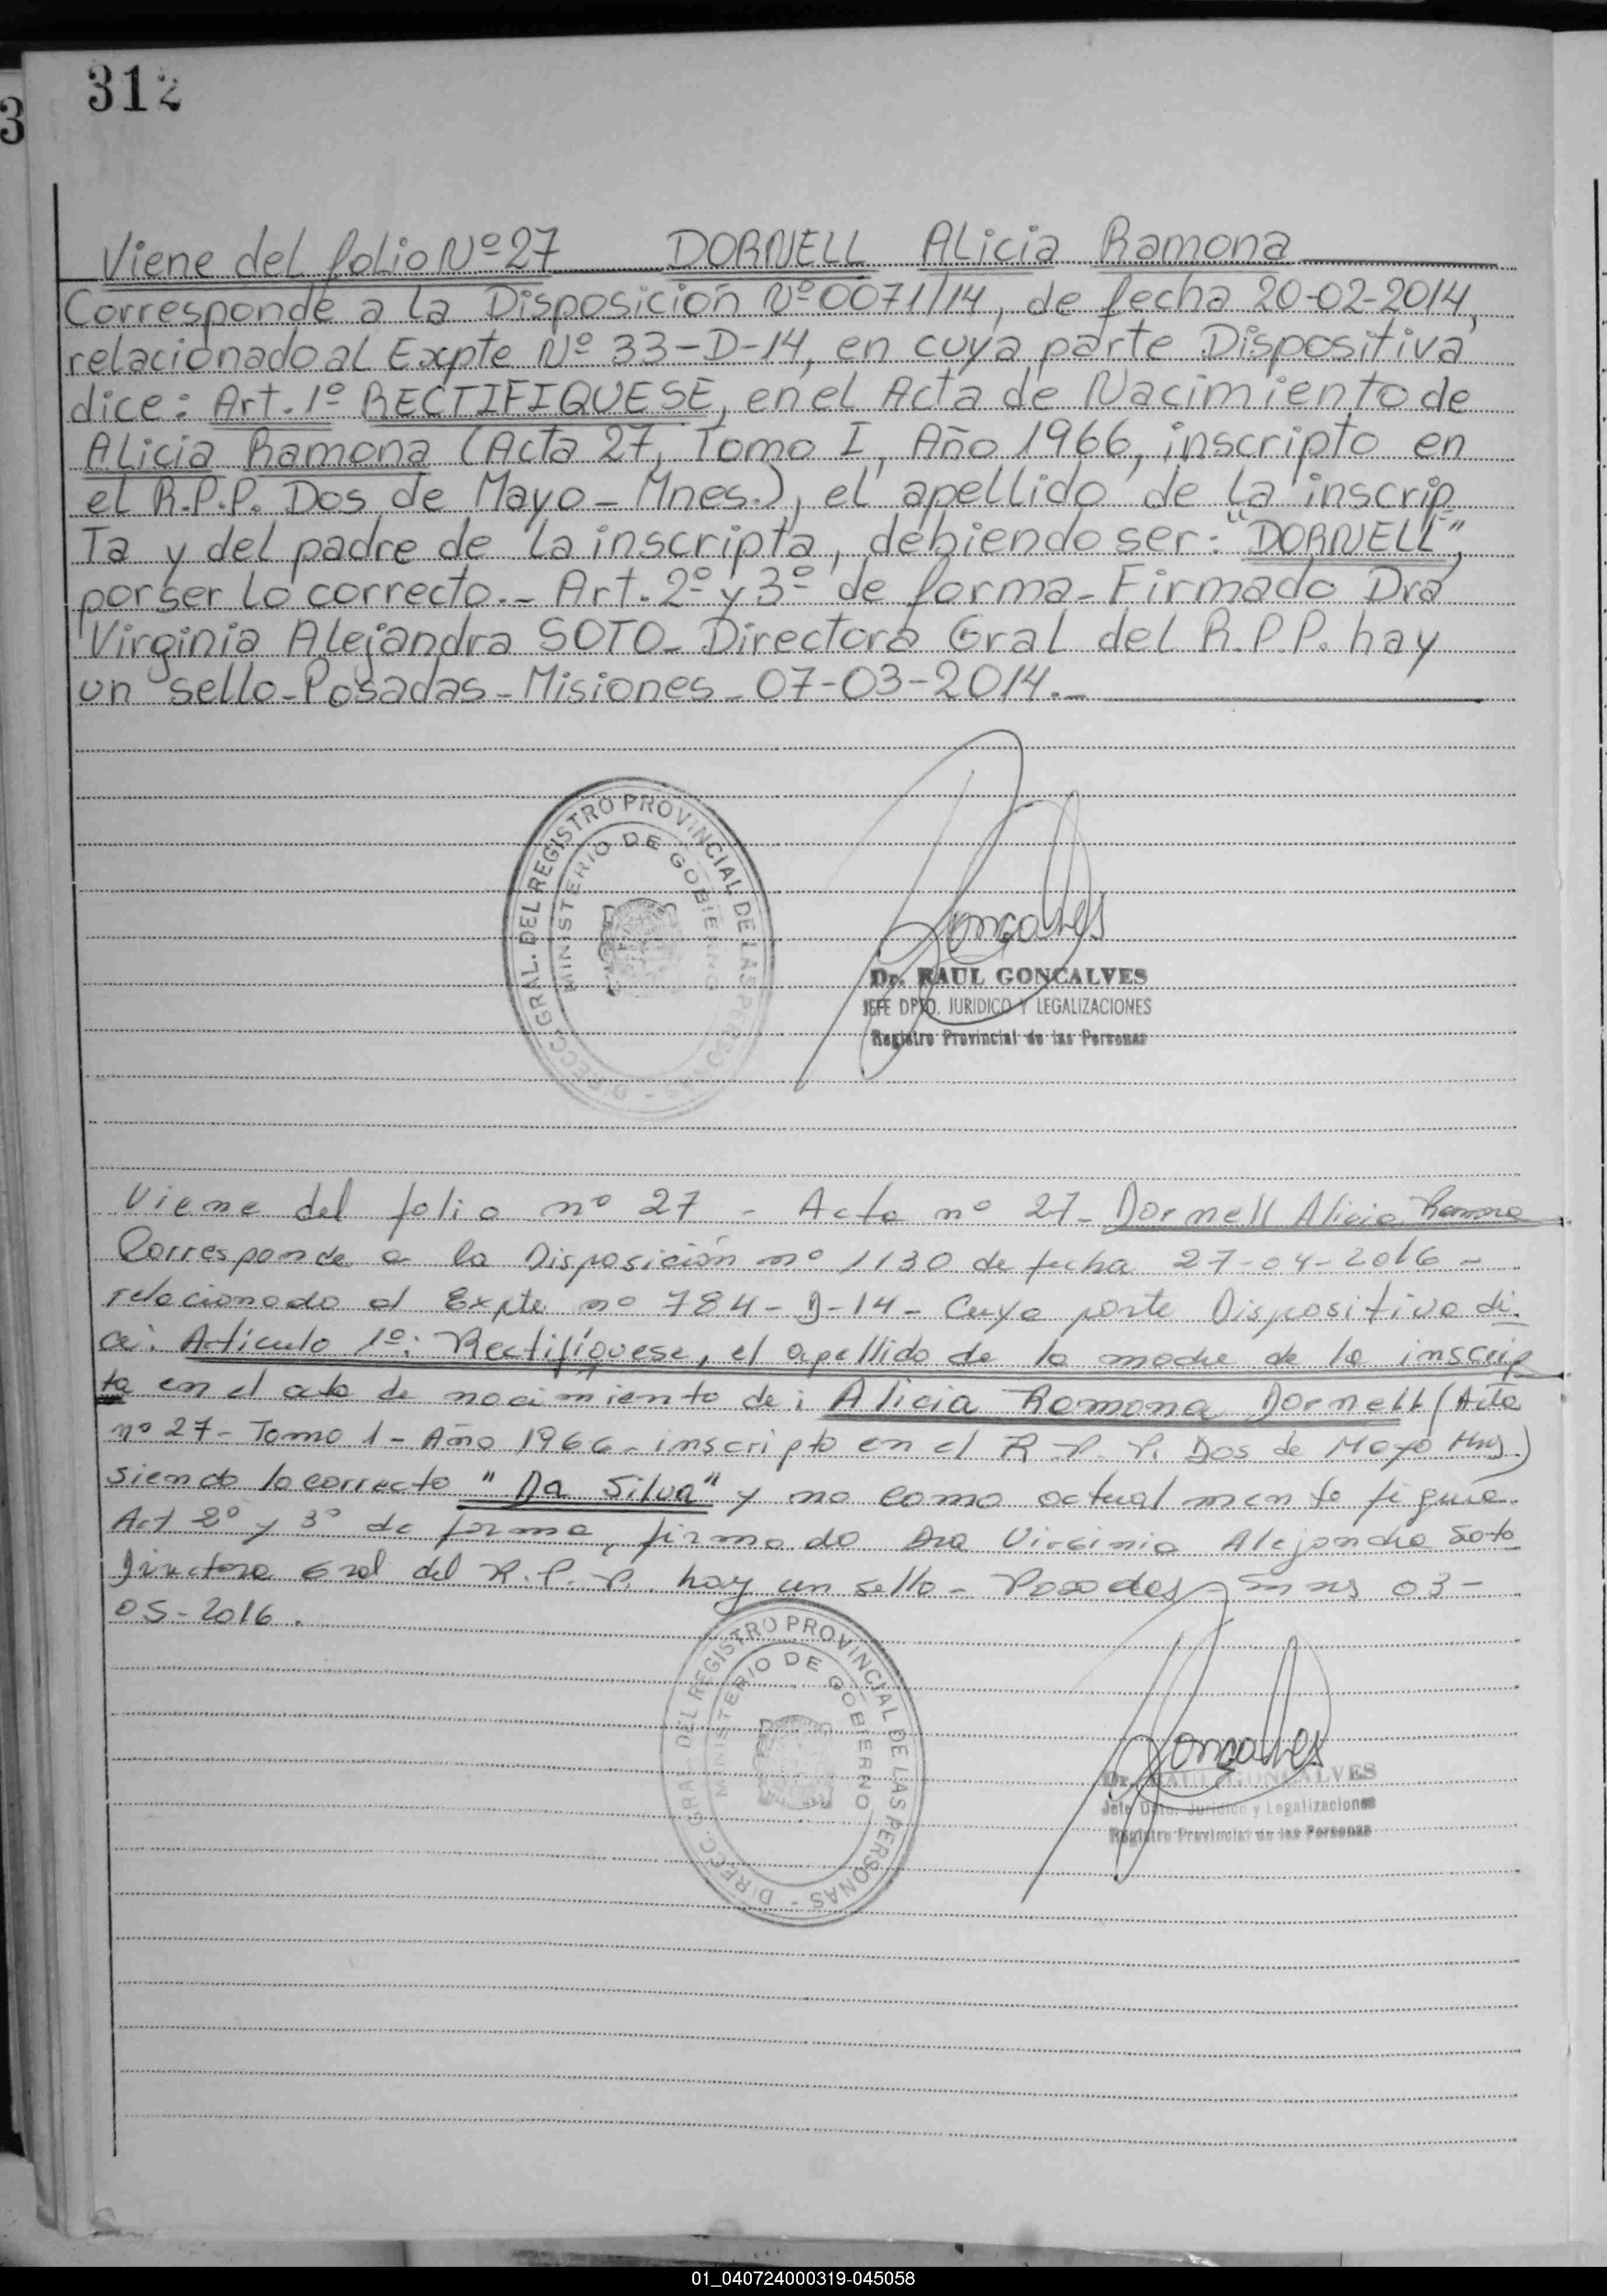 312
3
Viene del folio Nº 27 DORNELL Alicia Ramona
Corresponde a la Disposición Nº 0071/14, de fecha 20-02-2014,
relacionado al Expte Nº 33-D-14, en cuya parte Dispositiva
dice: Art. 1º RECTIFIQUESE, en el Acta de Nacimiento de
Alicia Ramona (Acta 27, Tomo I, Año 1966, inscripto en
el R.P.P. Dos de Mayo - Mnes.), el apellido de la inscrip
Ta y del padre de la inscripta, debiendo ser: "DORNELL",
por ser lo correcto.- Art. 2º y 3º de forma - Firmado Dra
Virginia Alejandra SOTO - Directora Gral del R.P.P. hay
un sello - Posadas - Misiones - 07-03-2014.-
DIRECC. GRAL. DEL REGISTRO PROVINCIAL DE LAS PERSONAS -
MINISTERIO DE GOBIERNO
Goncalves
Dr. RAUL GONCALVES
JEFE DPTO. JURIDICO Y LEGALIZACIONES
Registro Provincial de las Personas
Viene del folio nº 27 - Acta nº 27 - Dornell Alicia Ramona
Corresponde a la Disposición nº 1130 de fecha 27-04-2016 -
relacionado al Expte nº 784 - D-14 - Cuya parte Dispositiva di
ce: Artículo 1º: Rectifíquese, el apellido de la madre de la inscrip
ta en el acta de nacimiento de: Alicia Ramona Dornell (Acta
nº 27 - Tomo 1 - Año 1966 - inscripto en el R.P.P. Dos de Mayo Mns)
siendo lo correcto "Da Silva" y no como actualmente figura.
Art 2º y 3º de forma, firmado Dra Virginia Alejandra Soto
Directora Gral del R.P.P. hay un sello - Posadas - Mns 03-
05-2016.
DIRECC. GRAL. DEL REGISTRO PROVINCIAL DE LAS PERSONAS -
MINISTERIO DE GOBIERNO
Goncalves
Dr. RAUL GONCALVES
Jefe Dpto. Jurídico y Legalizaciones
Registro Provincial de las Personas
01_040724000319-045058